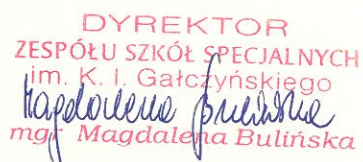 DYREKTOR
ZESPÓŁU SZKÓŁ SPECJALNYCH
im. K. I. Gałczyńskiego
Magdalena Bulińska
mgr Magdalena Bulińska